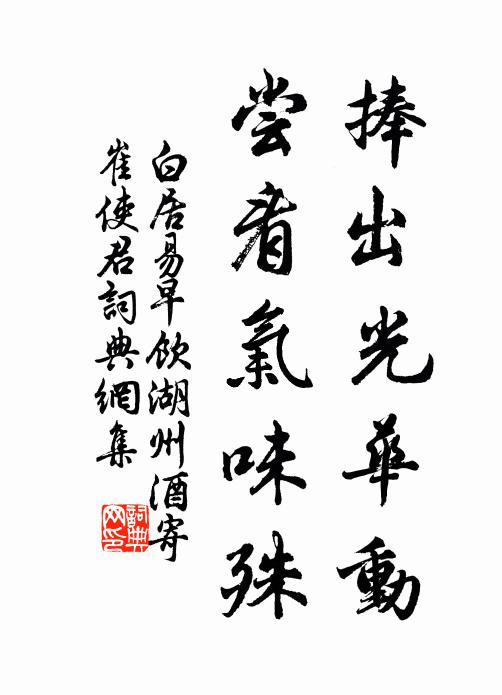 捧出光華動
尝看氣味殊
白居易早飲湖州酒寄
崔使君詞典網集
詞典
网印